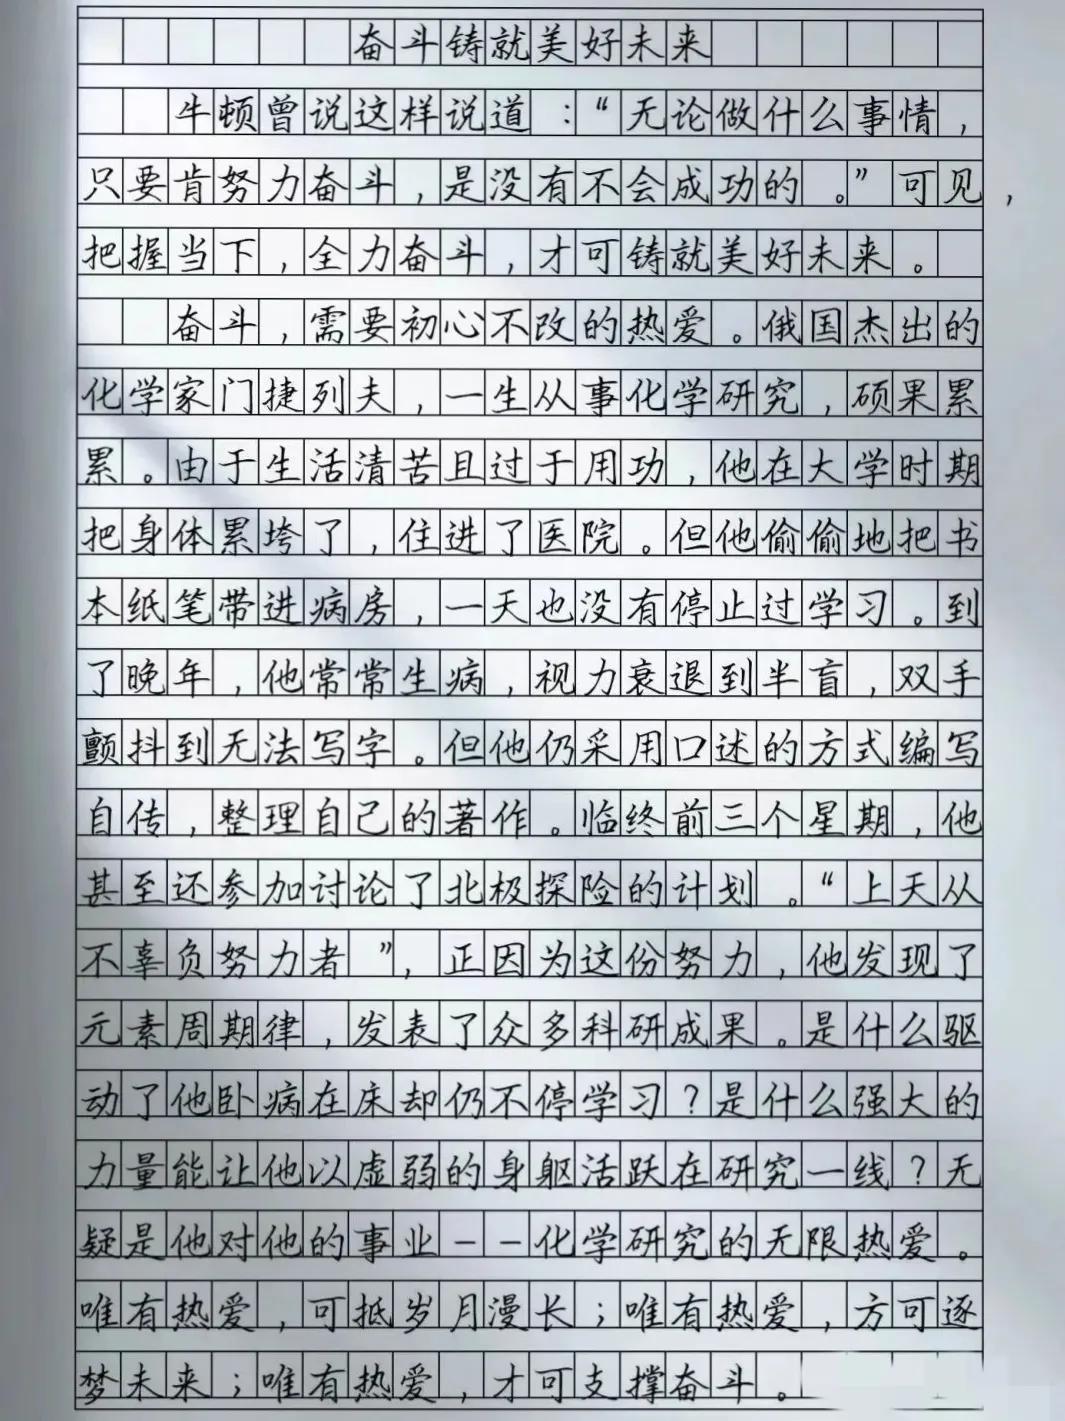 奋斗铸就美好未来
牛顿曾说这样说道：“无论做什么事情，
只要肯努力奋斗，是没有不会成功的。”可见，
把握当下，全力奋斗，才可铸就美好未来。
奋斗，需要初心不改的热爱。俄国杰出的
化学家门捷列夫，一生从事化学研究，硕果累
累。由于生活清苦且过于用功，他在大学时期
把身体累垮了，住进了医院。但他偷偷地把书
本纸笔带进病房，一天也没有停止过学习。到
了晚年，他常常生病，视力衰退到半盲，双手
颤抖到无法写字。但他仍采用口述的方式编写
自传，整理自己的著作。临终前三个星期，他
甚至还参加讨论了北极探险的计划。“上天从
不辜负努力者”，正因为这份努力，他发现了
元素周期律，发表了众多科研成果。是什么驱
动了他卧病在床却仍不停学习？是什么强大的
力量能让他以虚弱的身躯活跃在研究一线？无
疑是他对他的事业－－化学研究的无限热爱。
唯有热爱，可抵岁月漫长；唯有热爱，方可逐
梦未来；唯有热爱，才可支撑奋斗。